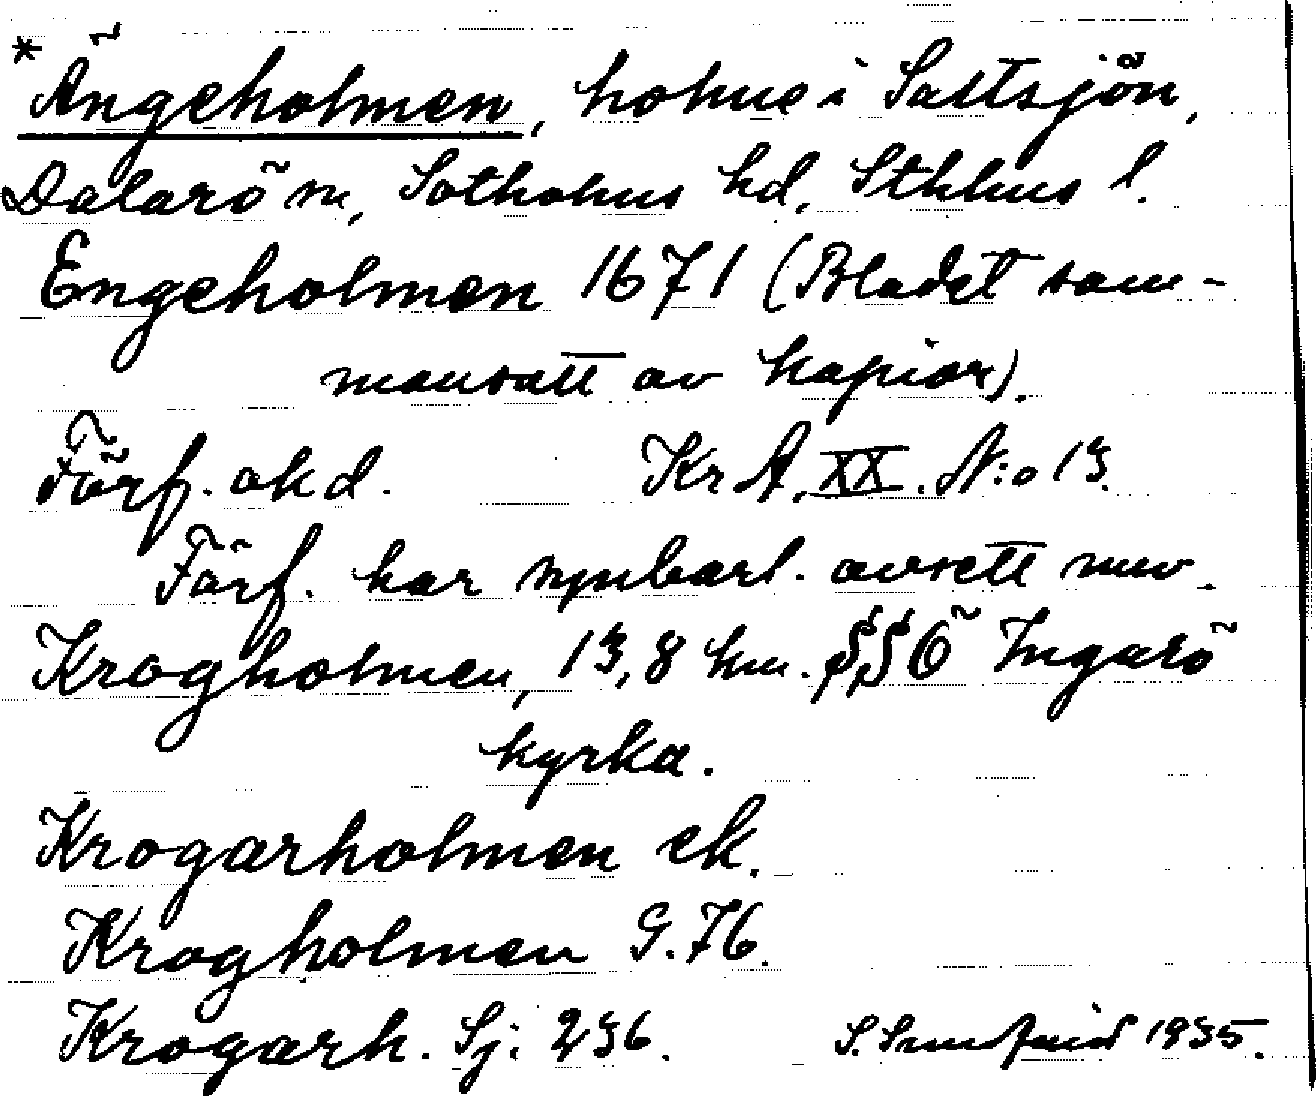 *Ängeholmen, holme i Saltsjön,
Dalarö sn, Sotholms hd, Sthlms l.
Engeholmen 1671 (Bladet sam-
mansatt av kopior).
Förf. okd. KrA, XX. N:o 13.
Förf. har synbarl. avsett nuv.
Krogholmen, 13,8 km. SSÖ Ingarö
kyrka.
Krogarholmen ek.
Krogholmen G. 76.
Krogarh. Sj: 236. S. 1935.